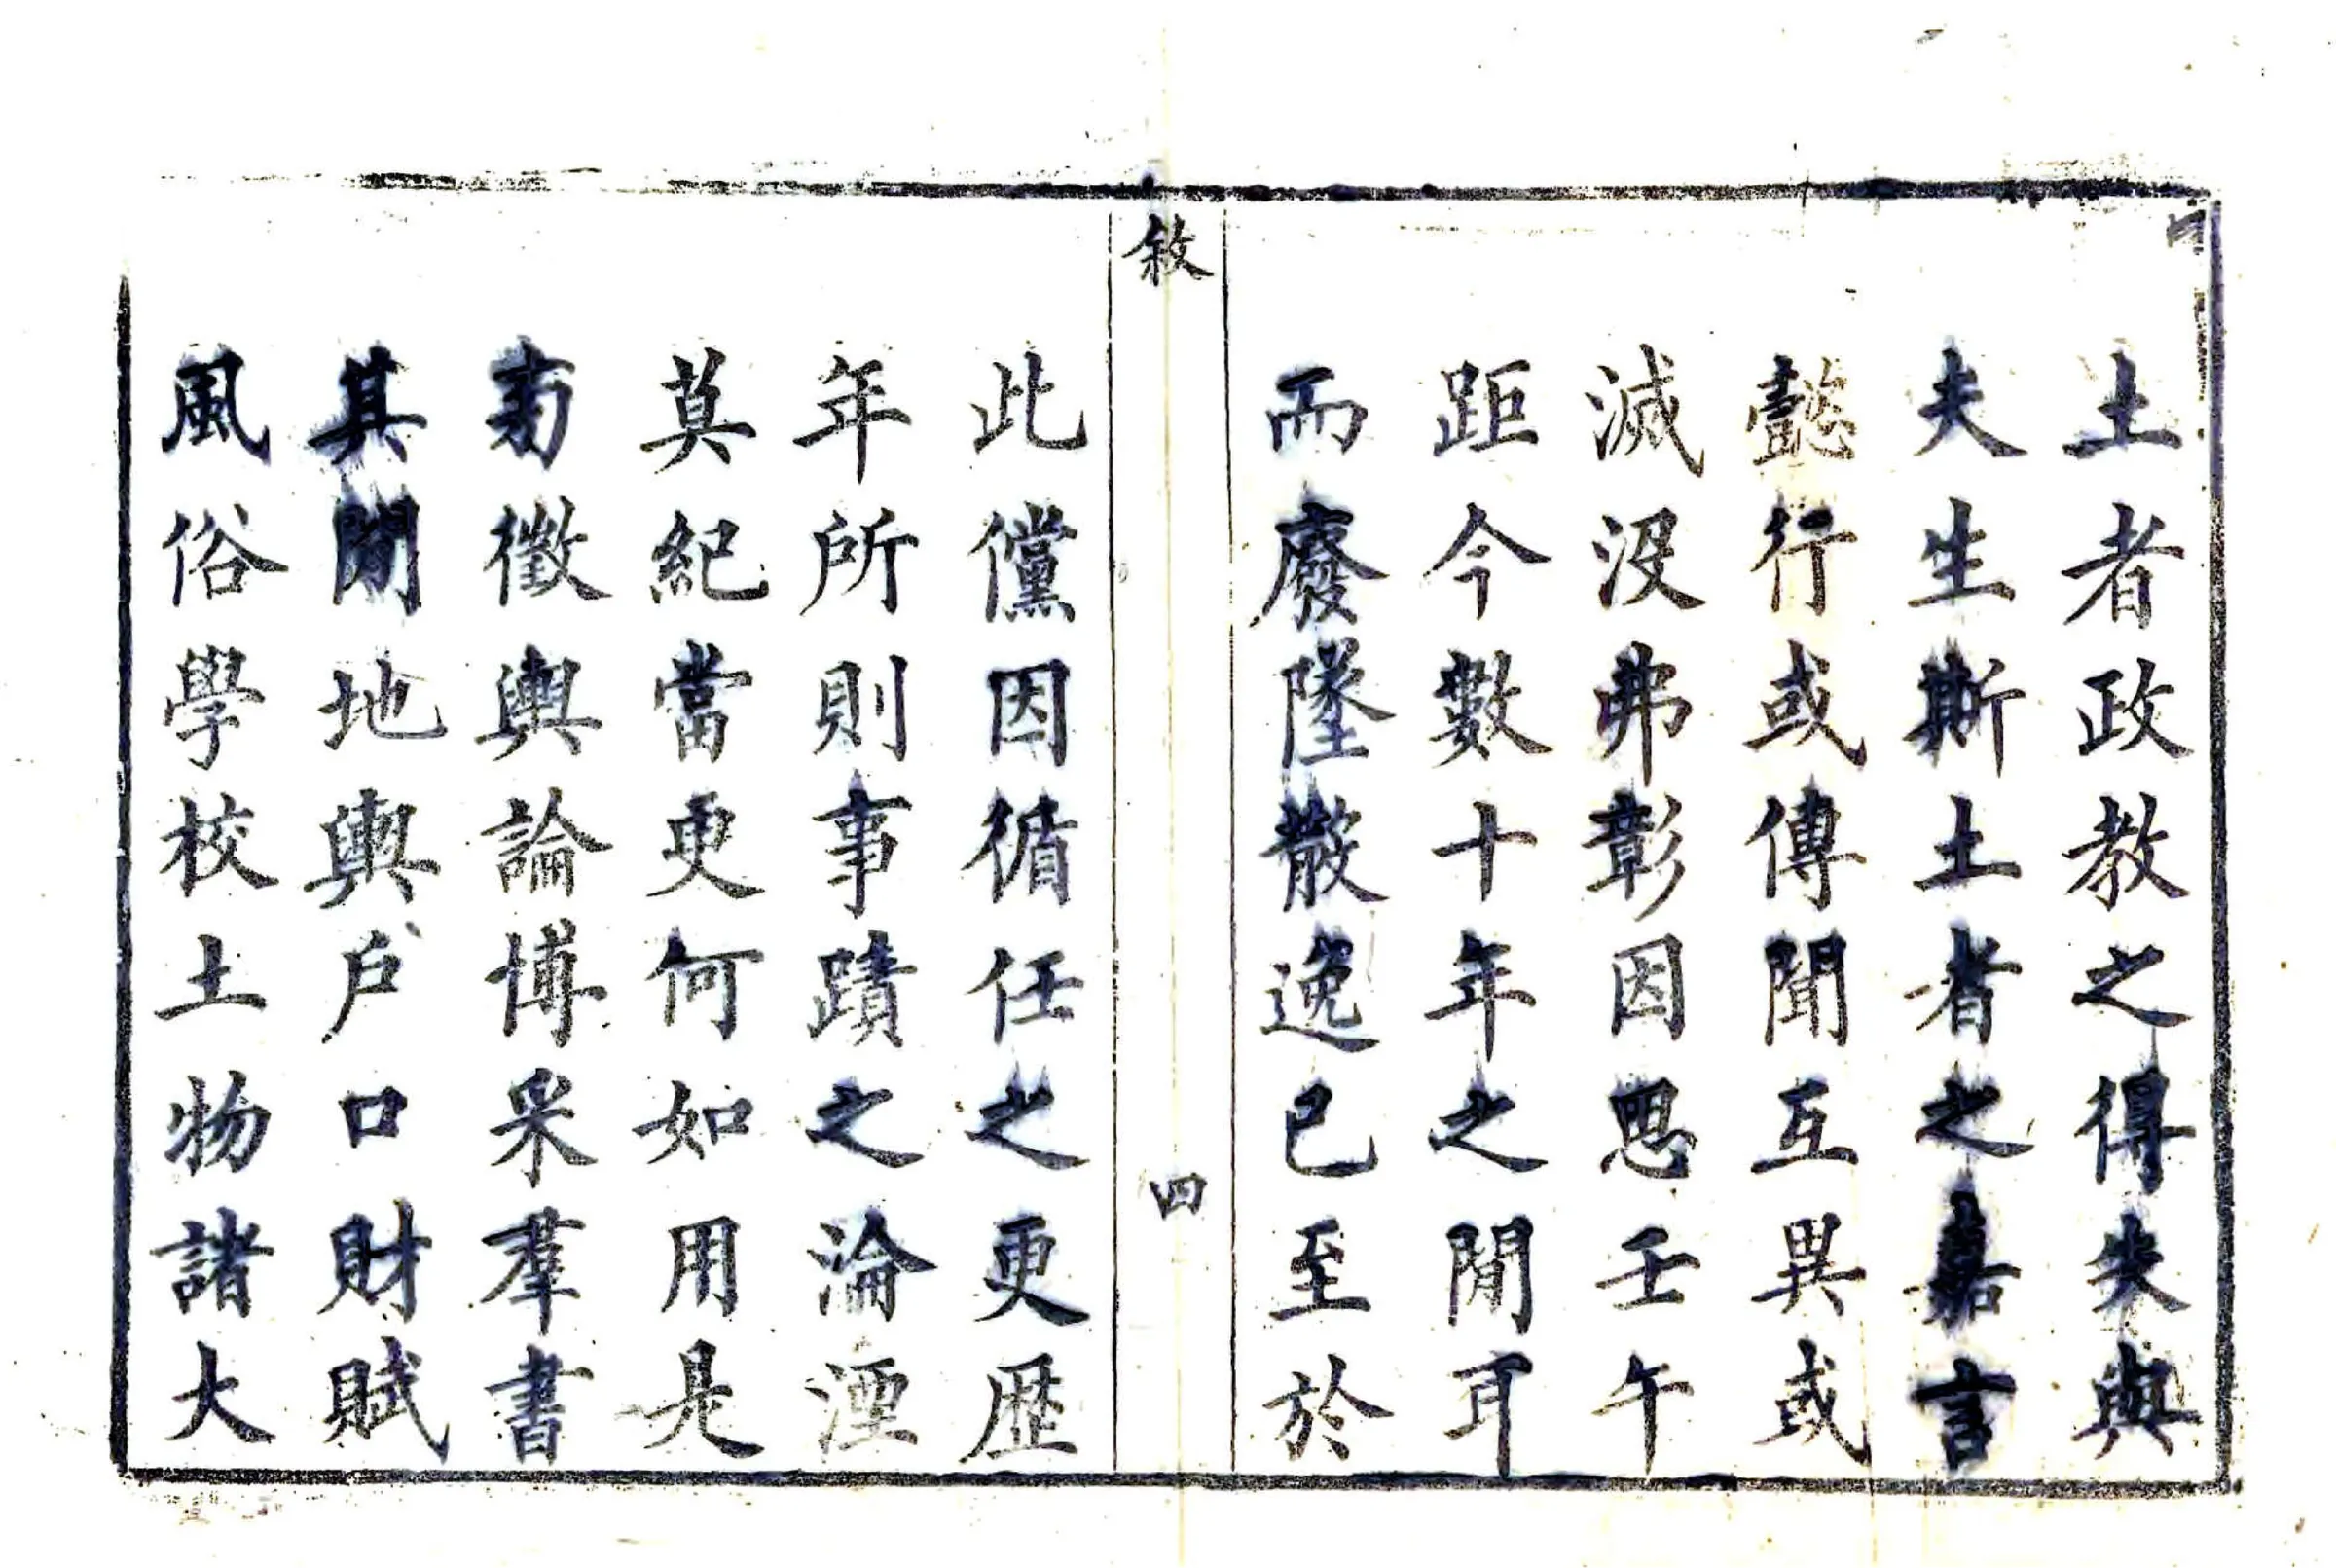 土者政教之得失與
夫生斯土者之嘉言
懿行或傳聞互異或
滅没弗彰因思壬午
距今數十年之閒耳
而廢墜散逸已至於
敘
四
此儻因循任之更歷
年所則事蹟之淪湮
莫紀當更何如用是
旁徵輿論博采羣書
其閒地輿戶口財賦
風俗學校土物諸大